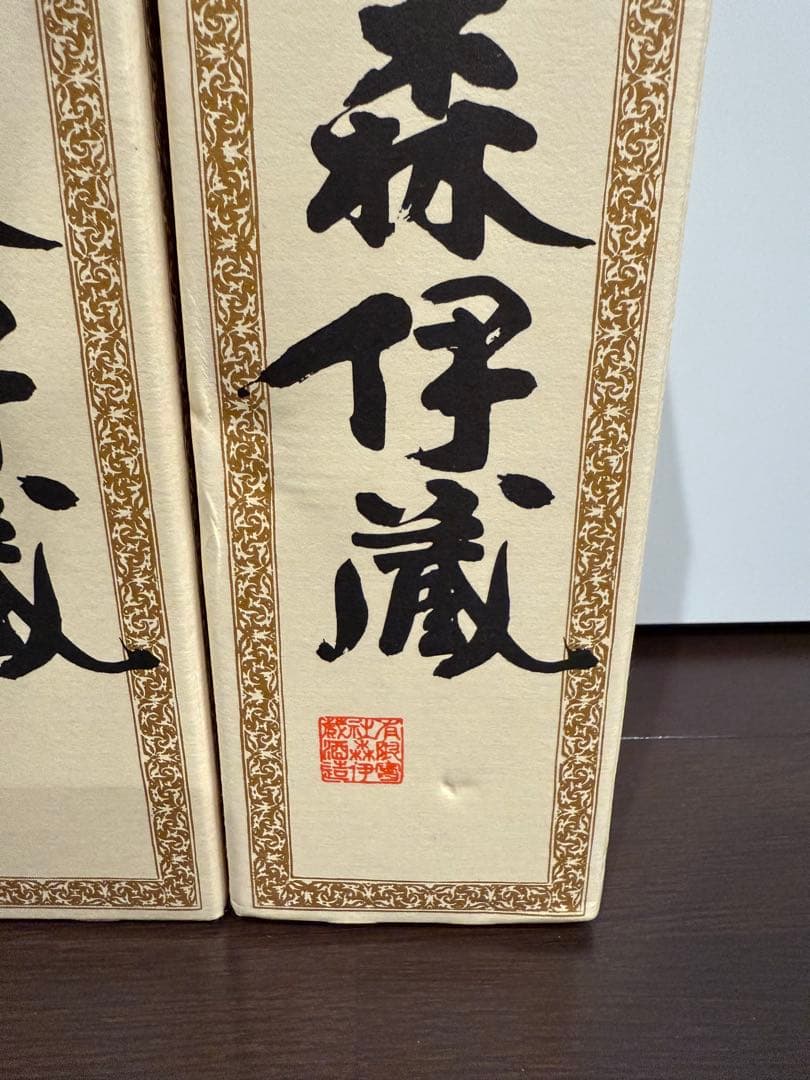 森伊蔵
有限会
社森伊
蔵酒造
蔵